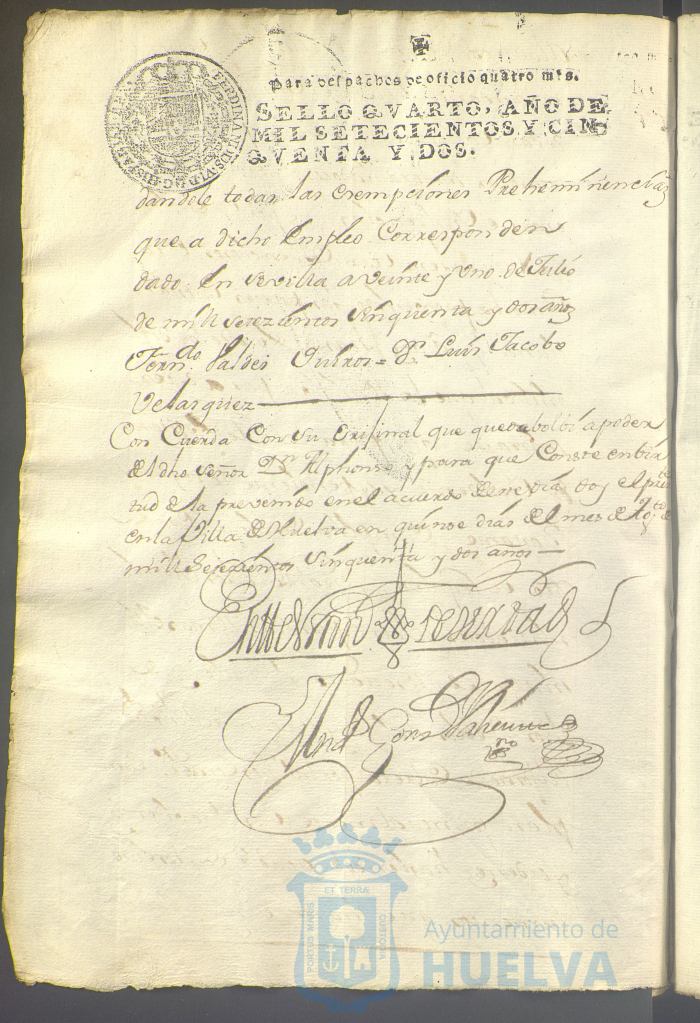 Para despachos de oficio quatro mrs.
SELLO QVARTO, AÑO DE
MIL SETECIENTOS Y CIN
QVENTA Y DOS.
dandole todas las exempciones Preheminencias
que a dicho Empleo Corresponden
dado en Sevilla a veinte y uno de Julio
de mill setezientos sinquenta y dos años
Ferndo. Valdes Quiros = Dn. Luis Jacobo
Velasquez
Con Cuerda Con su Orijinal que que debolbi a poder
del dho Señor Dn. Alphonso y para que Conste en bir
tud de lo prevenido en el acuerdo de este dia doy el prete
en la Villa de Huelva en quinse dias del mes de Agto. de
mill Setezientos sinquenta y dos años
ET TERRÆ
PORTUS MARIS
CUSTODIA
Ayuntamiento de
HUELVA